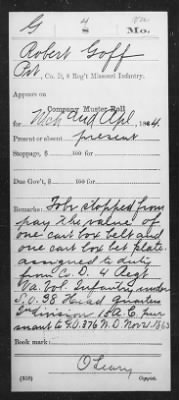 G 4 8 Mo.
Robert Goff
Pvt, Co. D, 8 Reg't Missouri Infantry.
Appears on
Company Muster Roll
for Mch and Apl, 1864.
Present or absent present
Stoppage, $ 100 for
Due Gov't, $ 100 for
Remarks: To be stopped from
pay the value of
one cart box belt and
one cart box belt plate.
assigned to duty
from Co. D. 4 Regt
Va. Vol. Infantry under
S.O. 38 Head quarters
2nd division 15 A.C. pur
suant to G.O. 376 W.D. Nov 21 1863
Book mark:
O'Leary
(858) Copyist.